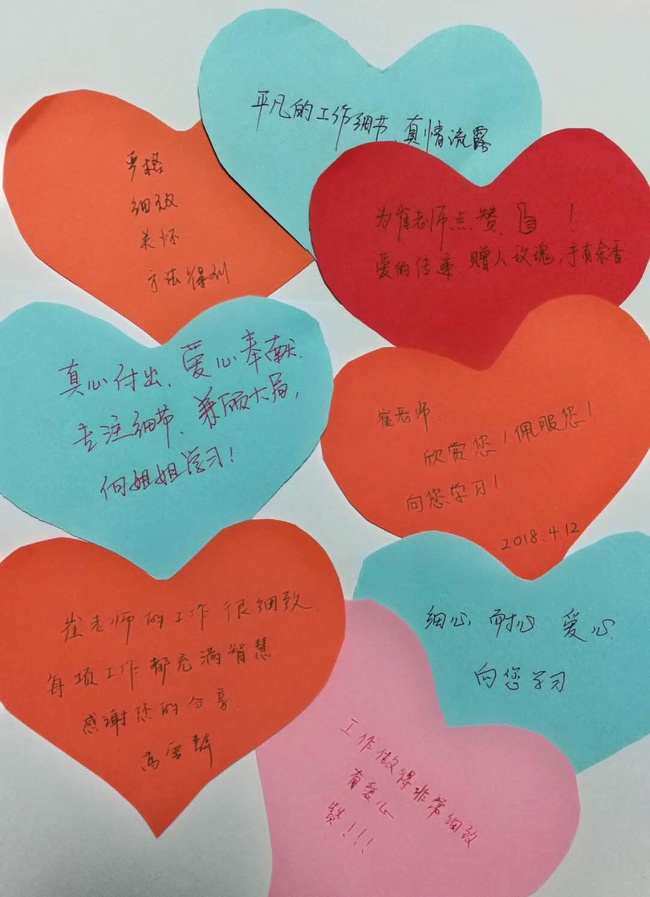 平凡的工作细节 真情流露
严格
细致
关怀
方法得则
为崔老师点赞 !
爱的传递 赠人玫瑰,手有余香
真心付出、爱心奉献.
专注细节、兼顾大局,
向姐姐学习!
崔老师.
欣赏您!佩服您!
向您学习!
2018.4.12
崔老师的工作很细致
每项工作都充满智慧
感谢您的分享.
细心 耐心 爱心
向您学习
工作做得非常细致
有爱心
赞!!!